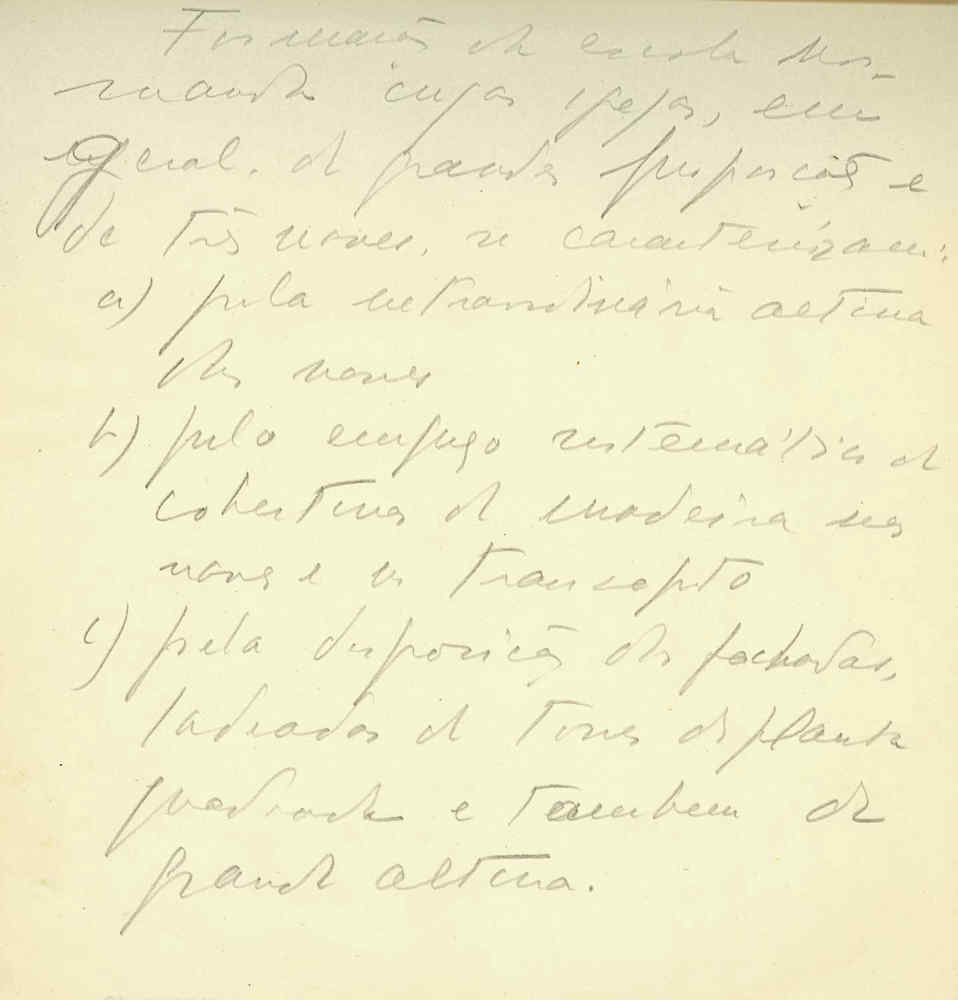 Formação da escola Nor-
manda cujas igrejas, em
geral, de grandes proporções e
de três naves, se caracterizam:
a) pela extraordinária altura
das naves
b) pelo emprego sistemático de
cobertura de madeira nas
naves e no transepto
c) pela disposição das fachadas,
ladeadas de torres de planta
quadrada e tambem de
grande altura.